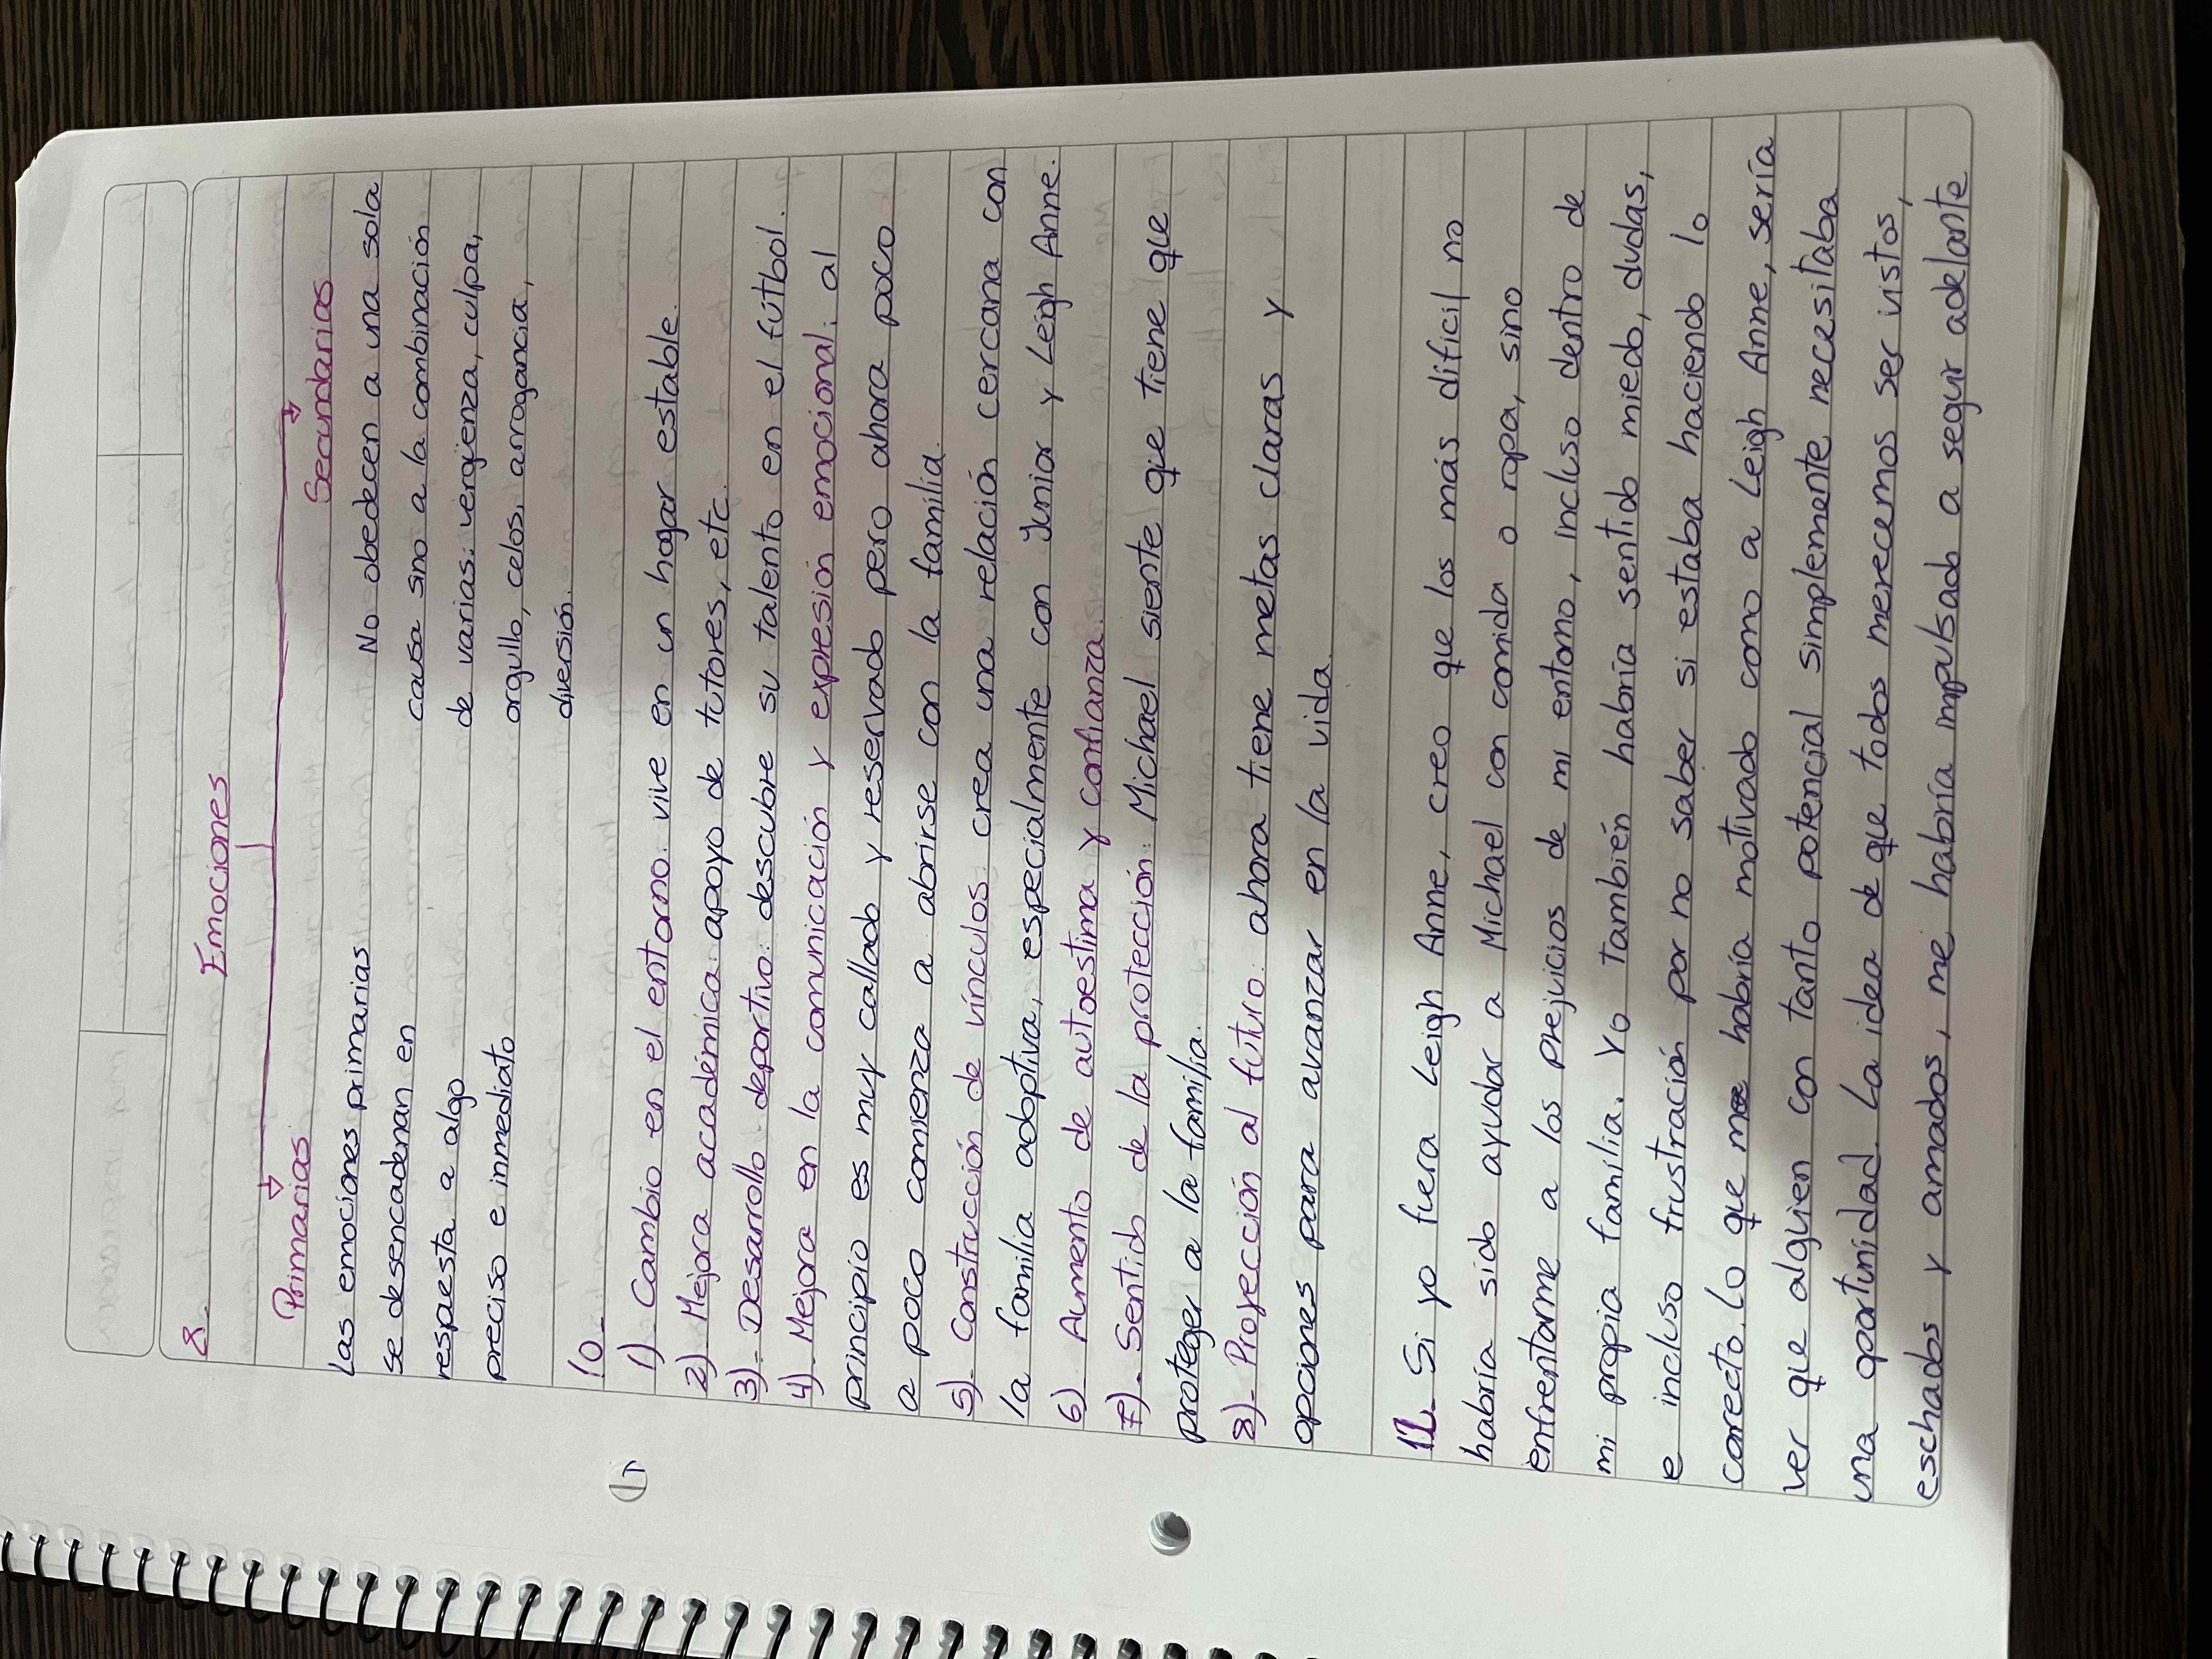 8.-
Emociones
Primarias
Secundarias
Las emociones primarias
se desencadenan en
respuesta a algo
preciso e inmediato
No obedecen a una sola
causa sno a la combinación
de varias: vergüenza, culpa,
orgullo, celos, arrogancia,
diversión.
10.-
1).- Cambio en el entorno: vive en un hogar estable.
2).- Mejora académica: apoyo de tutores, etc.
3).- Desarrollo deportivo: descubre su talento en el fútbol.
4).- Mejora en la comunicación y expresión emocional: al
principio es muy callado y reservado pero ahora poco
a poco comienza a abrirse con la familia.
5).- Construcción de vínculos: crea una relación cercana con
la familia adoptiva, especialmente con Junior y Leigh Anne.
6).- Aumento de autoestima y confianza.
7).- Sentido de la protección: Michael siente que tiene que
proteger a la familia.
8).- Proyección al futuro: ahora tiene metas claras y
opciones para avanzar en la vida.
12.- Si yo fuera Leigh Anne, creo que los más difícil no
habría sido ayudar a Michael con comida o ropa, sino
enfrentarme a los prejuicios de mi entorno, incluso dentro de
mi propia familia. Yo también habría sentido miedo, dudas,
e incluso frustración por no saber si estaba haciendo lo
correcto. Lo que me habría motivado como a Leigh Anne, sería
ver que alguien con tanto potencial simplemente necesitaba
una oportunidad. La idea de que todos merecemos ser vistos,
eschados y amados, me habría impulsado a seguir adelante